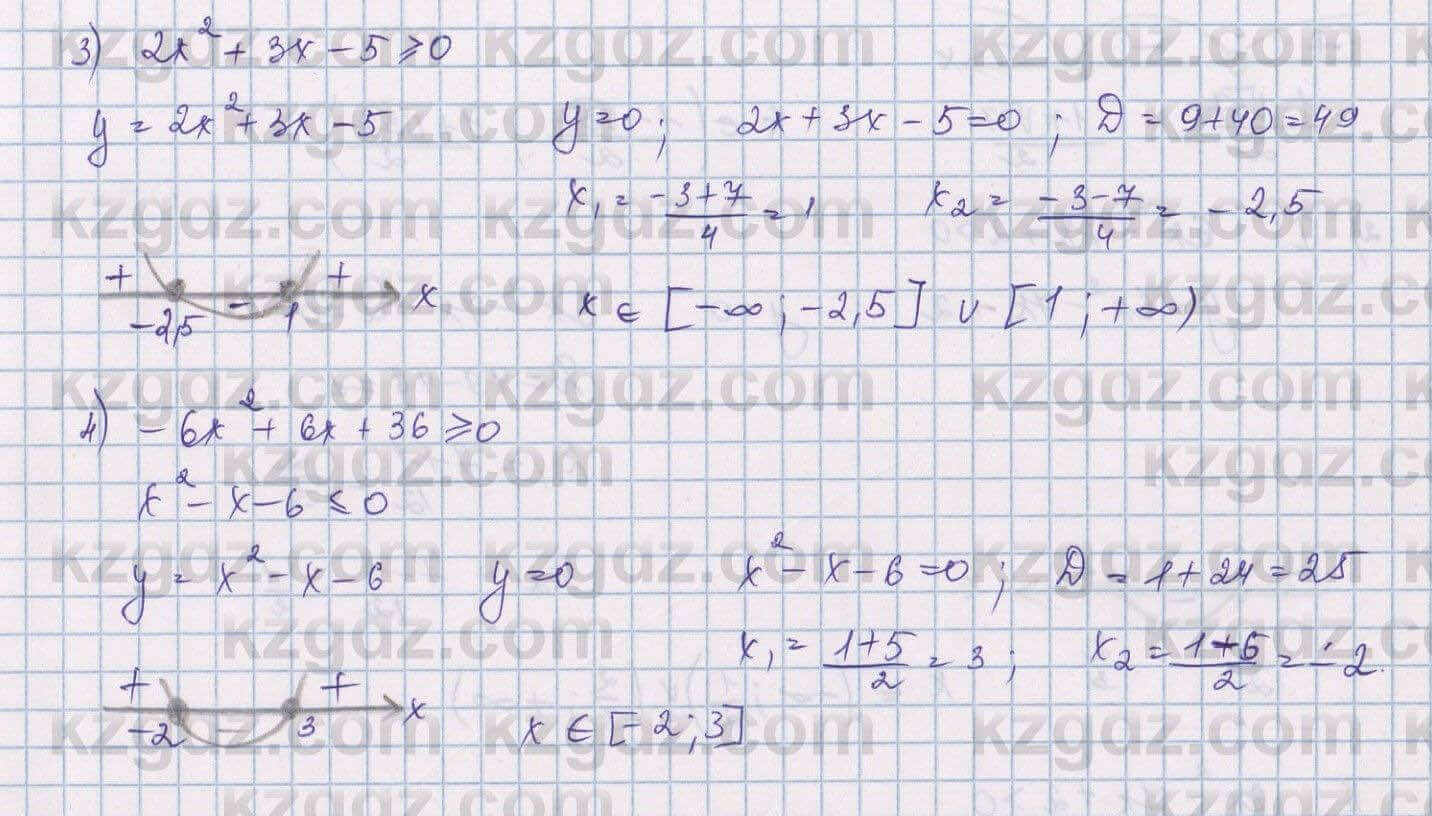 3) 2x² + 3x - 5 ≥ 0
y = 2x² + 3x - 5 y = 0; 2x + 3x - 5 = 0; D = 9 + 40 = 49
x₁ = (-3+7)/4 = 1 x₂ = (-3-7)/4 = -2,5
+ - + x
-2,5 1
x ∈ [-∞; -2,5] ∪ [1; +∞)
4) -6x² + 6x + 36 ≥ 0
x² - x - 6 ≤ 0
y = x² - x - 6 y = 0 x² - x - 6 = 0; D = 1 + 24 = 25
x₁ = (1+5)/2 = 3; x₂ = (1+5)/2 = -2.
+ - + x
-2 3
x ∈ [-2; 3]
kzgdz.com